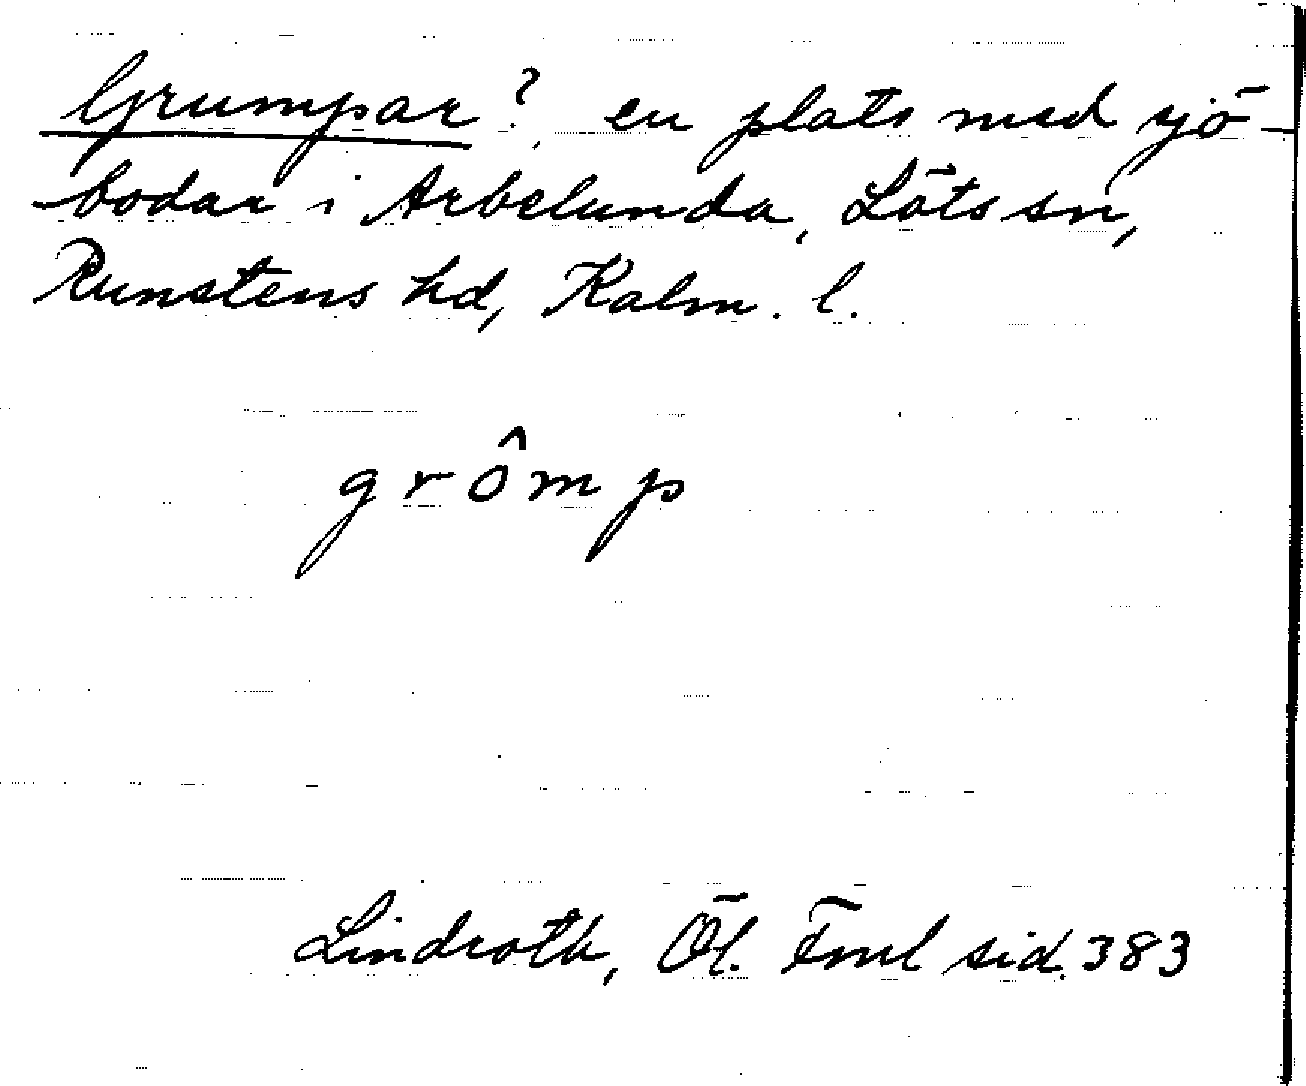 Grumpar?, en plats med sjö-
bodar i Arbelunda, Löts sn,
Runstens hd, Kalm. l.
grômp
Lindroth, Öl. Fml sid. 383